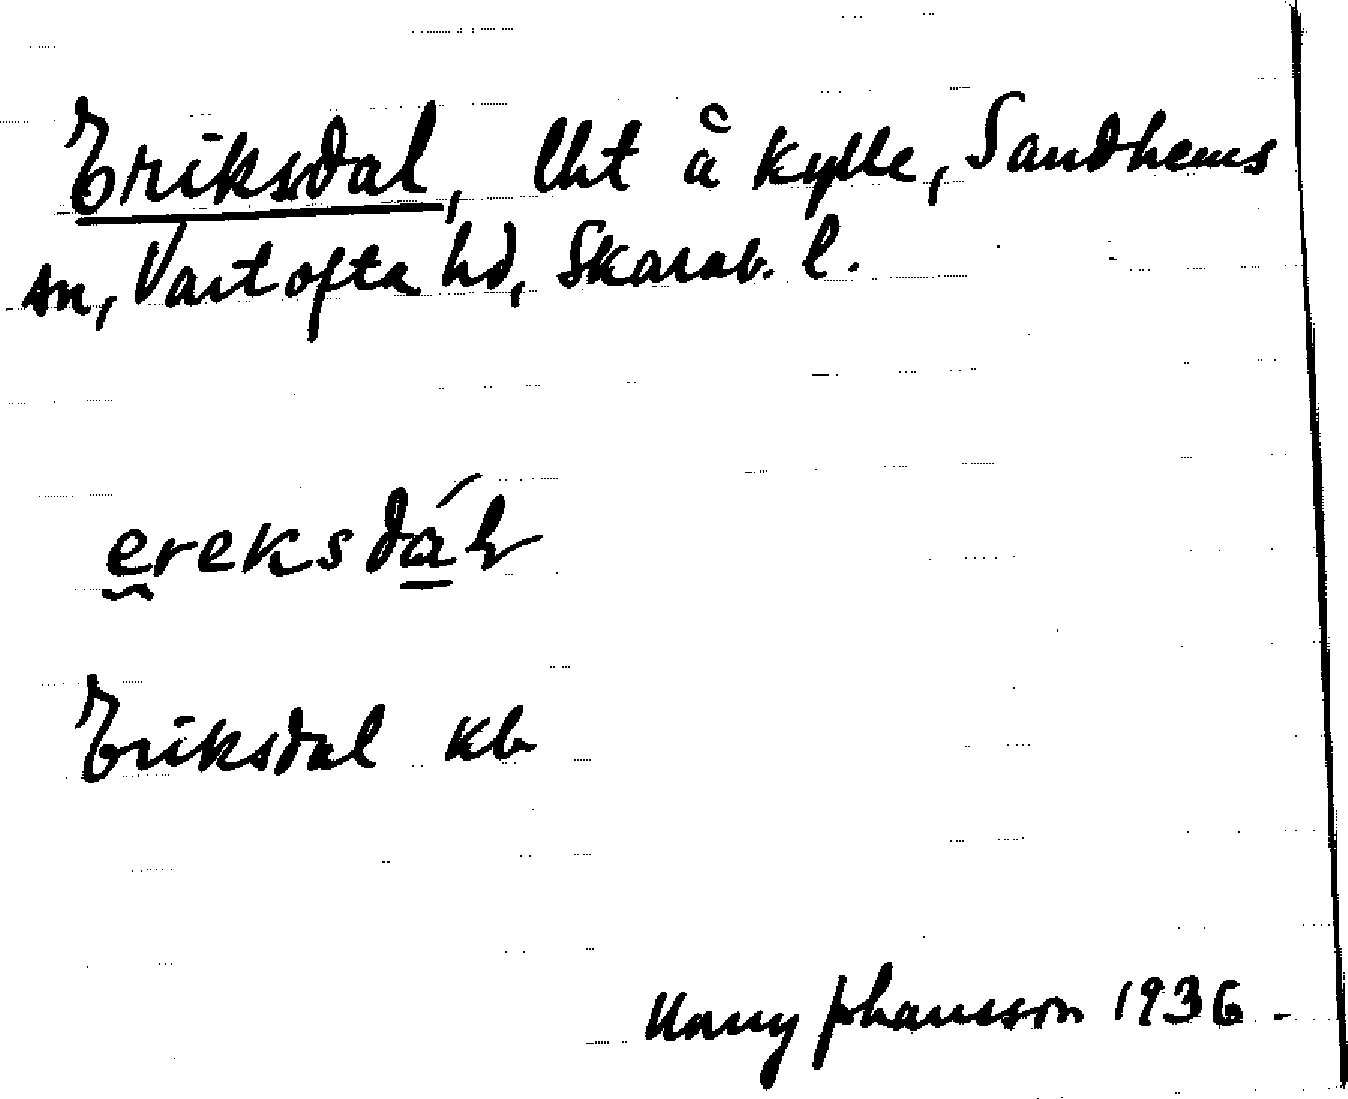 Eriksdal, lht å Kylle, Sandhems
sn, Vartofta hd, Skarab. l.
ereksdál
Eriksdal kb
Harry Johansson 1936